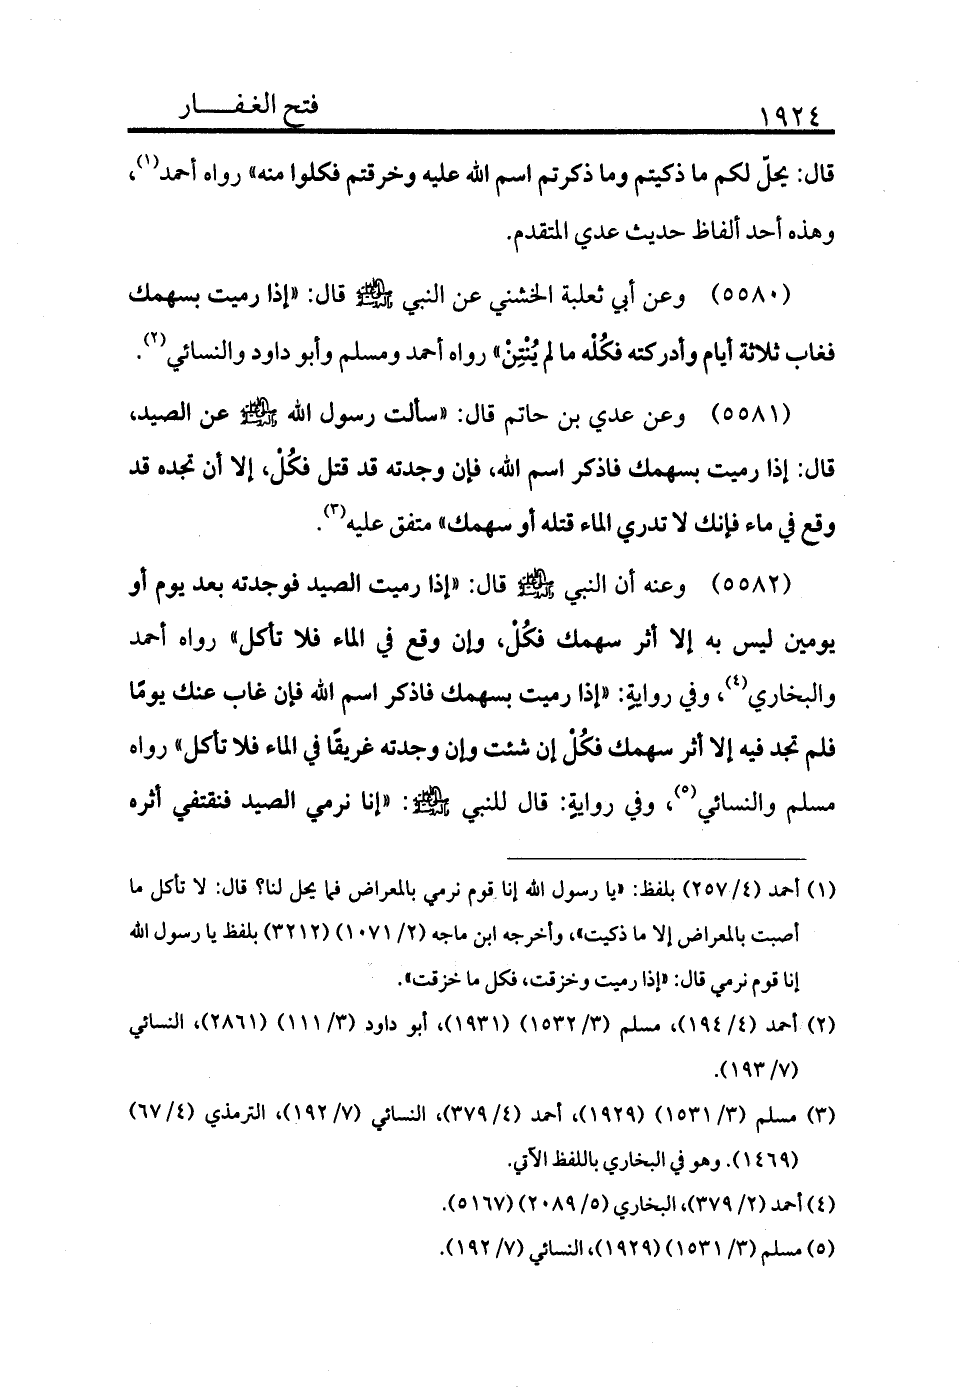 ١٩٢٤ فتح الغفـــار
قال: يحلّ لكم ما ذكيتم وما ذكرتم اسم الله عليه وخرقتم فكلوا منه» رواه أحمد(١)،
وهذه أحد ألفاظ حديث عدي المتقدم.
(٥٥٨٠) وعن أبي ثعلبة الخشني عن النبي ﷺ قال: «إذا رميت بسهمك
فغاب ثلاثة أيام وأدركته فكُلْه ما لم يُنْتِنْ» رواه أحمد ومسلم وأبو داود والنسائي(٢).
(٥٥٨١) وعن عدي بن حاتم قال: «سألت رسول الله ﷺ عن الصيد،
قال: إذا رميت بسهمك فاذكر اسم الله، فإن وجدته قد قتل فكُلْ، إلا أن تجده قد
وقع في ماء فإنك لا تدري الماء قتله أو سهمك» متفق عليه(٣).
(٥٥٨٢) وعنه أن النبي ﷺ قال: «إذا رميت الصيد فوجدته بعد يوم أو
يومين ليس به إلا أثر سهمك فكُلْ، وإن وقع في الماء فلا تأكل» رواه أحمد
والبخاري(٤)، وفي روايةٍ: «إذا رميت بسهمك فاذكر اسم الله فإن غاب عنك يومًا
فلم تجد فيه إلا أثر سهمك فكُلْ إن شئت وإن وجدته غريقًا في الماء فلا تأكل» رواه
مسلم والنسائي(٥)، وفي روايةٍ: قال للنبي ﷺ: «إنا نرمي الصيد فنقتفي أثره
(١) أحمد (٤/ ٢٥٧) بلفظ: «يا رسول الله إنا قوم نرمي بالمعراض فما يحل لنا؟ قال: لا تأكل ما
أصبت بالمعراض إلا ما ذكيت»، وأخرجه ابن ماجه (٢/ ١٠٧١) (٣٢١٢) بلفظ يا رسول الله
إنا قوم نرمي قال: «إذا رميت وخزقت، فكل ما خزقت».
(٢) أحمد (٤/ ١٩٤)، مسلم (٣/ ١٥٣٢) (١٩٣١)، أبو داود (٣/ ١١١) (٢٨٦١)، النسائي
(٧/ ١٩٣).
(٣) مسلم (٣/ ١٥٣١) (١٩٢٩)، أحمد (٤/ ٣٧٩)، النسائي (٧/ ١٩٢)، الترمذي (٤/ ٦٧)
(١٤٦٩). وهو في البخاري باللفظ الآتي.
(٤) أحمد (٢/ ٣٧٩)، البخاري (٥/ ٢٠٨٩) (٥١٦٧).
(٥) مسلم (٣/ ١٥٣١) (١٩٢٩)، النسائي (٧/ ١٩٢).